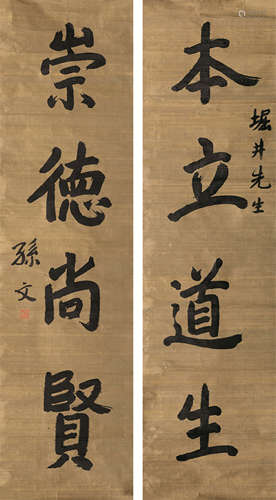 堀井先生
本立道生
崇德尚賢
孫文